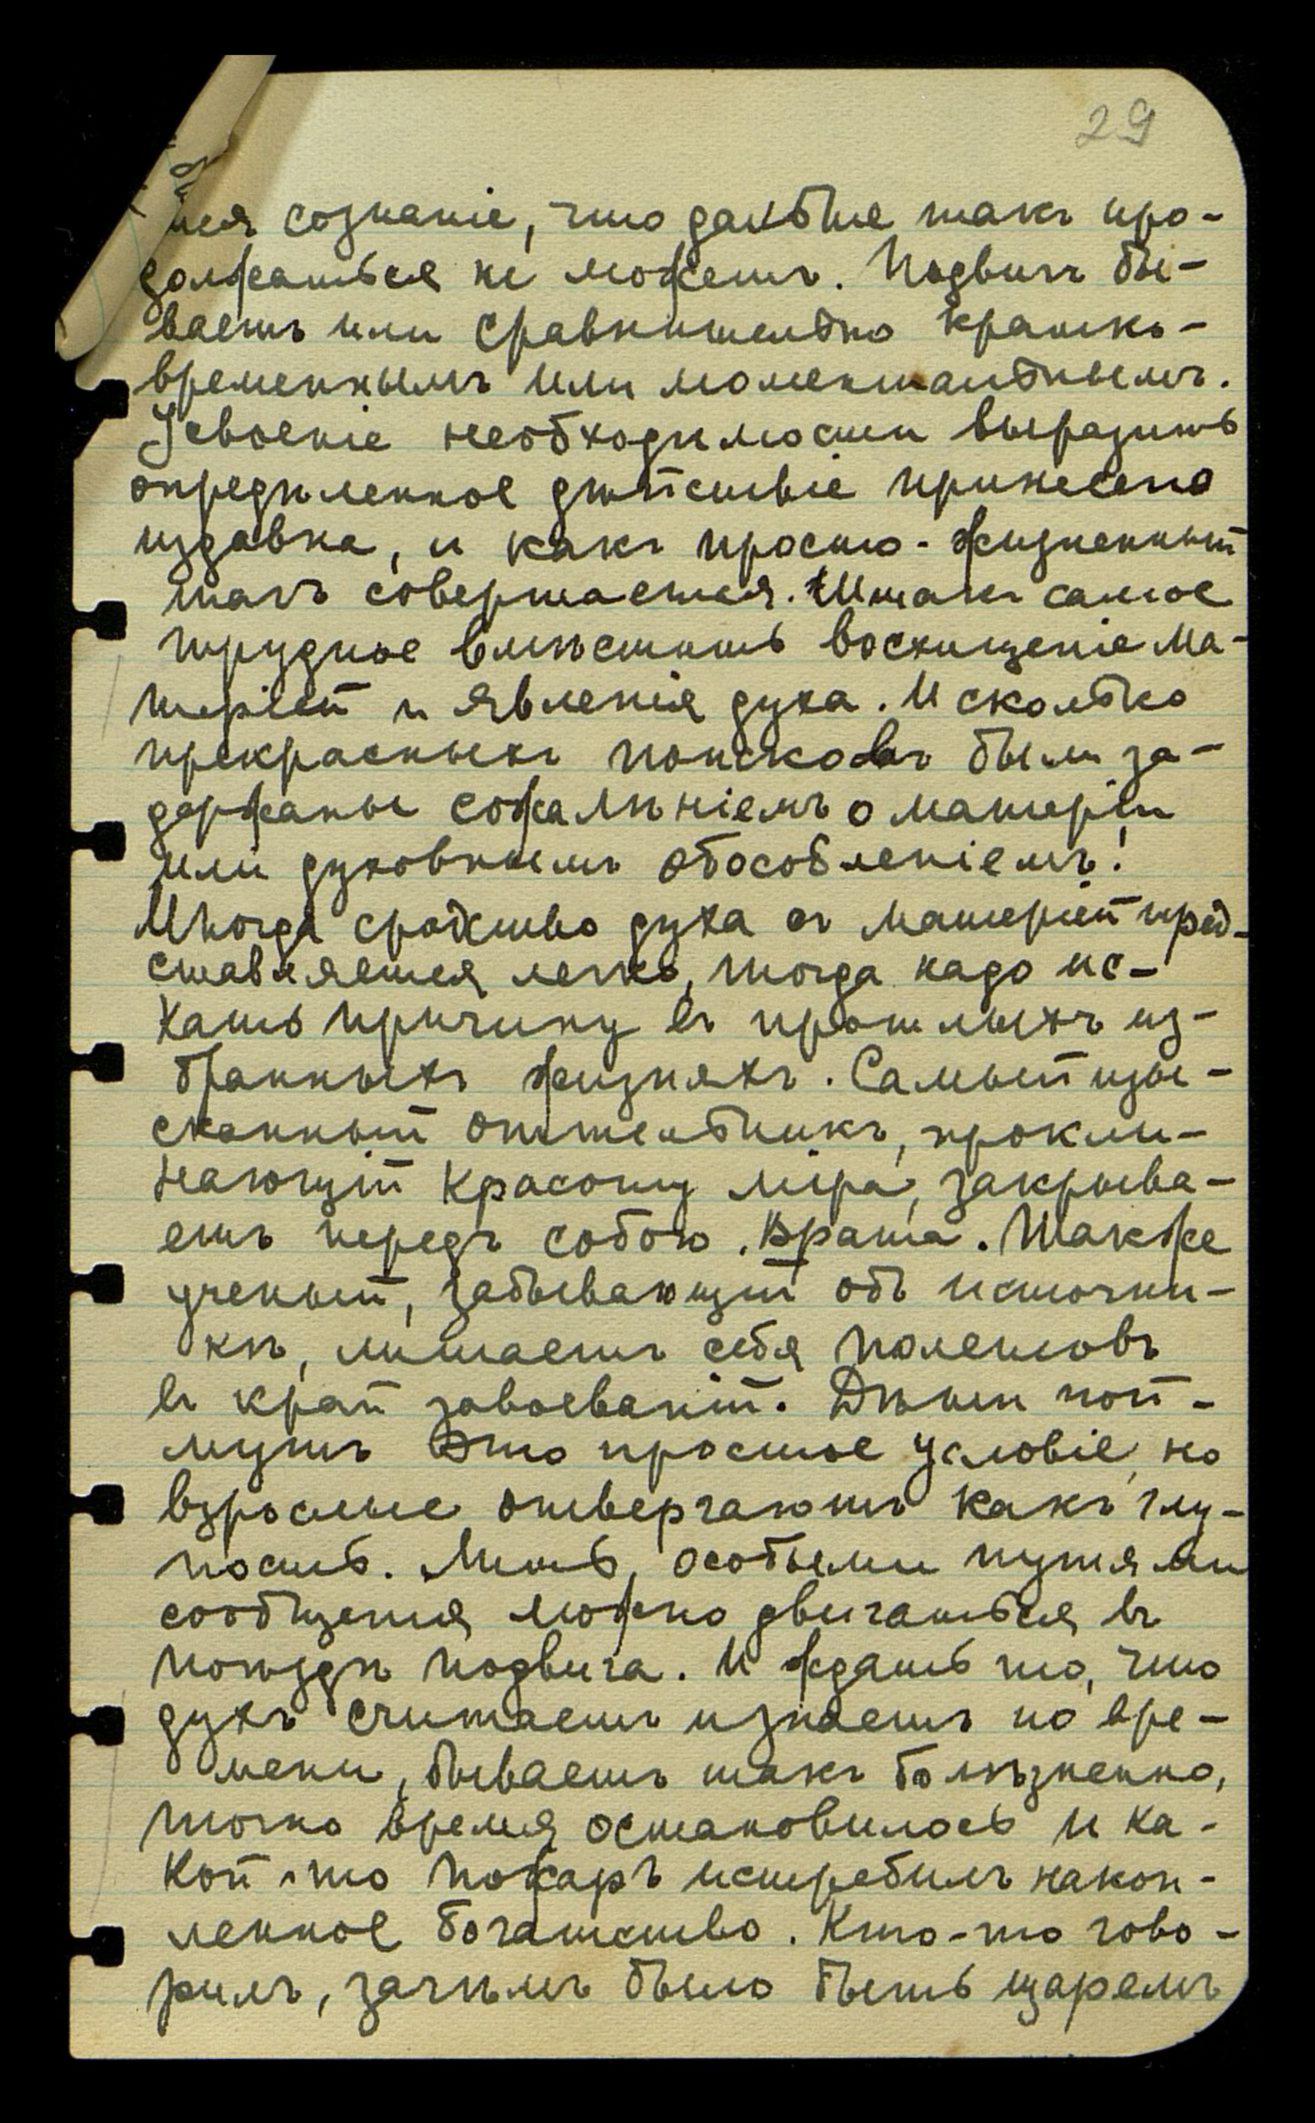 29
тся сознаніе, что дальше такъ про-
должаться не можетъ. Подвигъ бы-
ваетъ или сравнительно кратко-
временнымъ или моментальнымъ.
Усвоеніе необходимости выразить
определенное дѣйствіе принесено
издавна, и какъ просто-жизненный
шагъ совершается. Итакъ самое
трудное вмѣстить восхищеніе ма-
теріей и явленія духа. И сколько
прекрасныхъ поисковъ были за-
держаны сожалѣніемъ о матеріи
или духовнымъ обособленіемъ!
Иногда сродство духа съ матеріей пред-
ставляется легко, тогда надо ис-
кать причину въ прошлыхъ из-
бранныхъ жизняхъ. Самый изы-
сканный отшельникъ, прокли-
нающій красоту міра, закрыва-
етъ передъ собою Врата. Также
ученый, забывающій объ источни-
кѣ, лишаетъ себя полетовъ
въ край завоеваній. Дѣти пой-
мутъ это простое условіе, но
взрослые отвергаютъ какъ глу-
пость. Лишь особыми путями
сообщенія можно двигаться въ
поѣздѣ подвига. И ждать то, что
духъ считаетъ и знаетъ по вре-
мени, бываетъ такъ болѣзненно,
точно время остановилось и ка-
кой-то пожаръ истребилъ накоп-
ленное богатство. Кто-то гово-
рилъ, зачѣмъ было быть царемъ